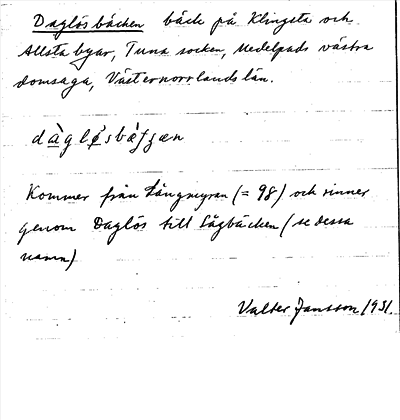 Daglösbäcken bäck på Klingsta och
Allsta byar, Tuna socken, Medelpads västra
domsaga, Västernorrlands län.
dàgløsbæ̀ʃʃæn
Kommer från Långmyran (= 98) och rinner
genom Daglös till Sågbäcken (se dessa
namn)
Valter Jansson 1931.